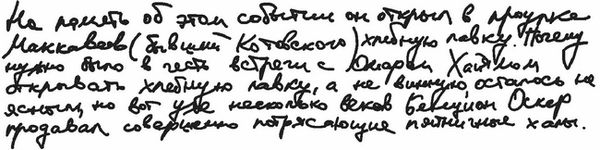 На память об этом событии он открыл в проулке
Маккавеев (бывший Котовского) хлебную лавку. Почему
нужно было в честь встречи с Оскаром Хаямом
открывать хлебную лавку, а не винную, осталось не
ясным, но вот уже несколько веков Бенцион Оскер
продавал совершенно потрясающие пятничные халы.